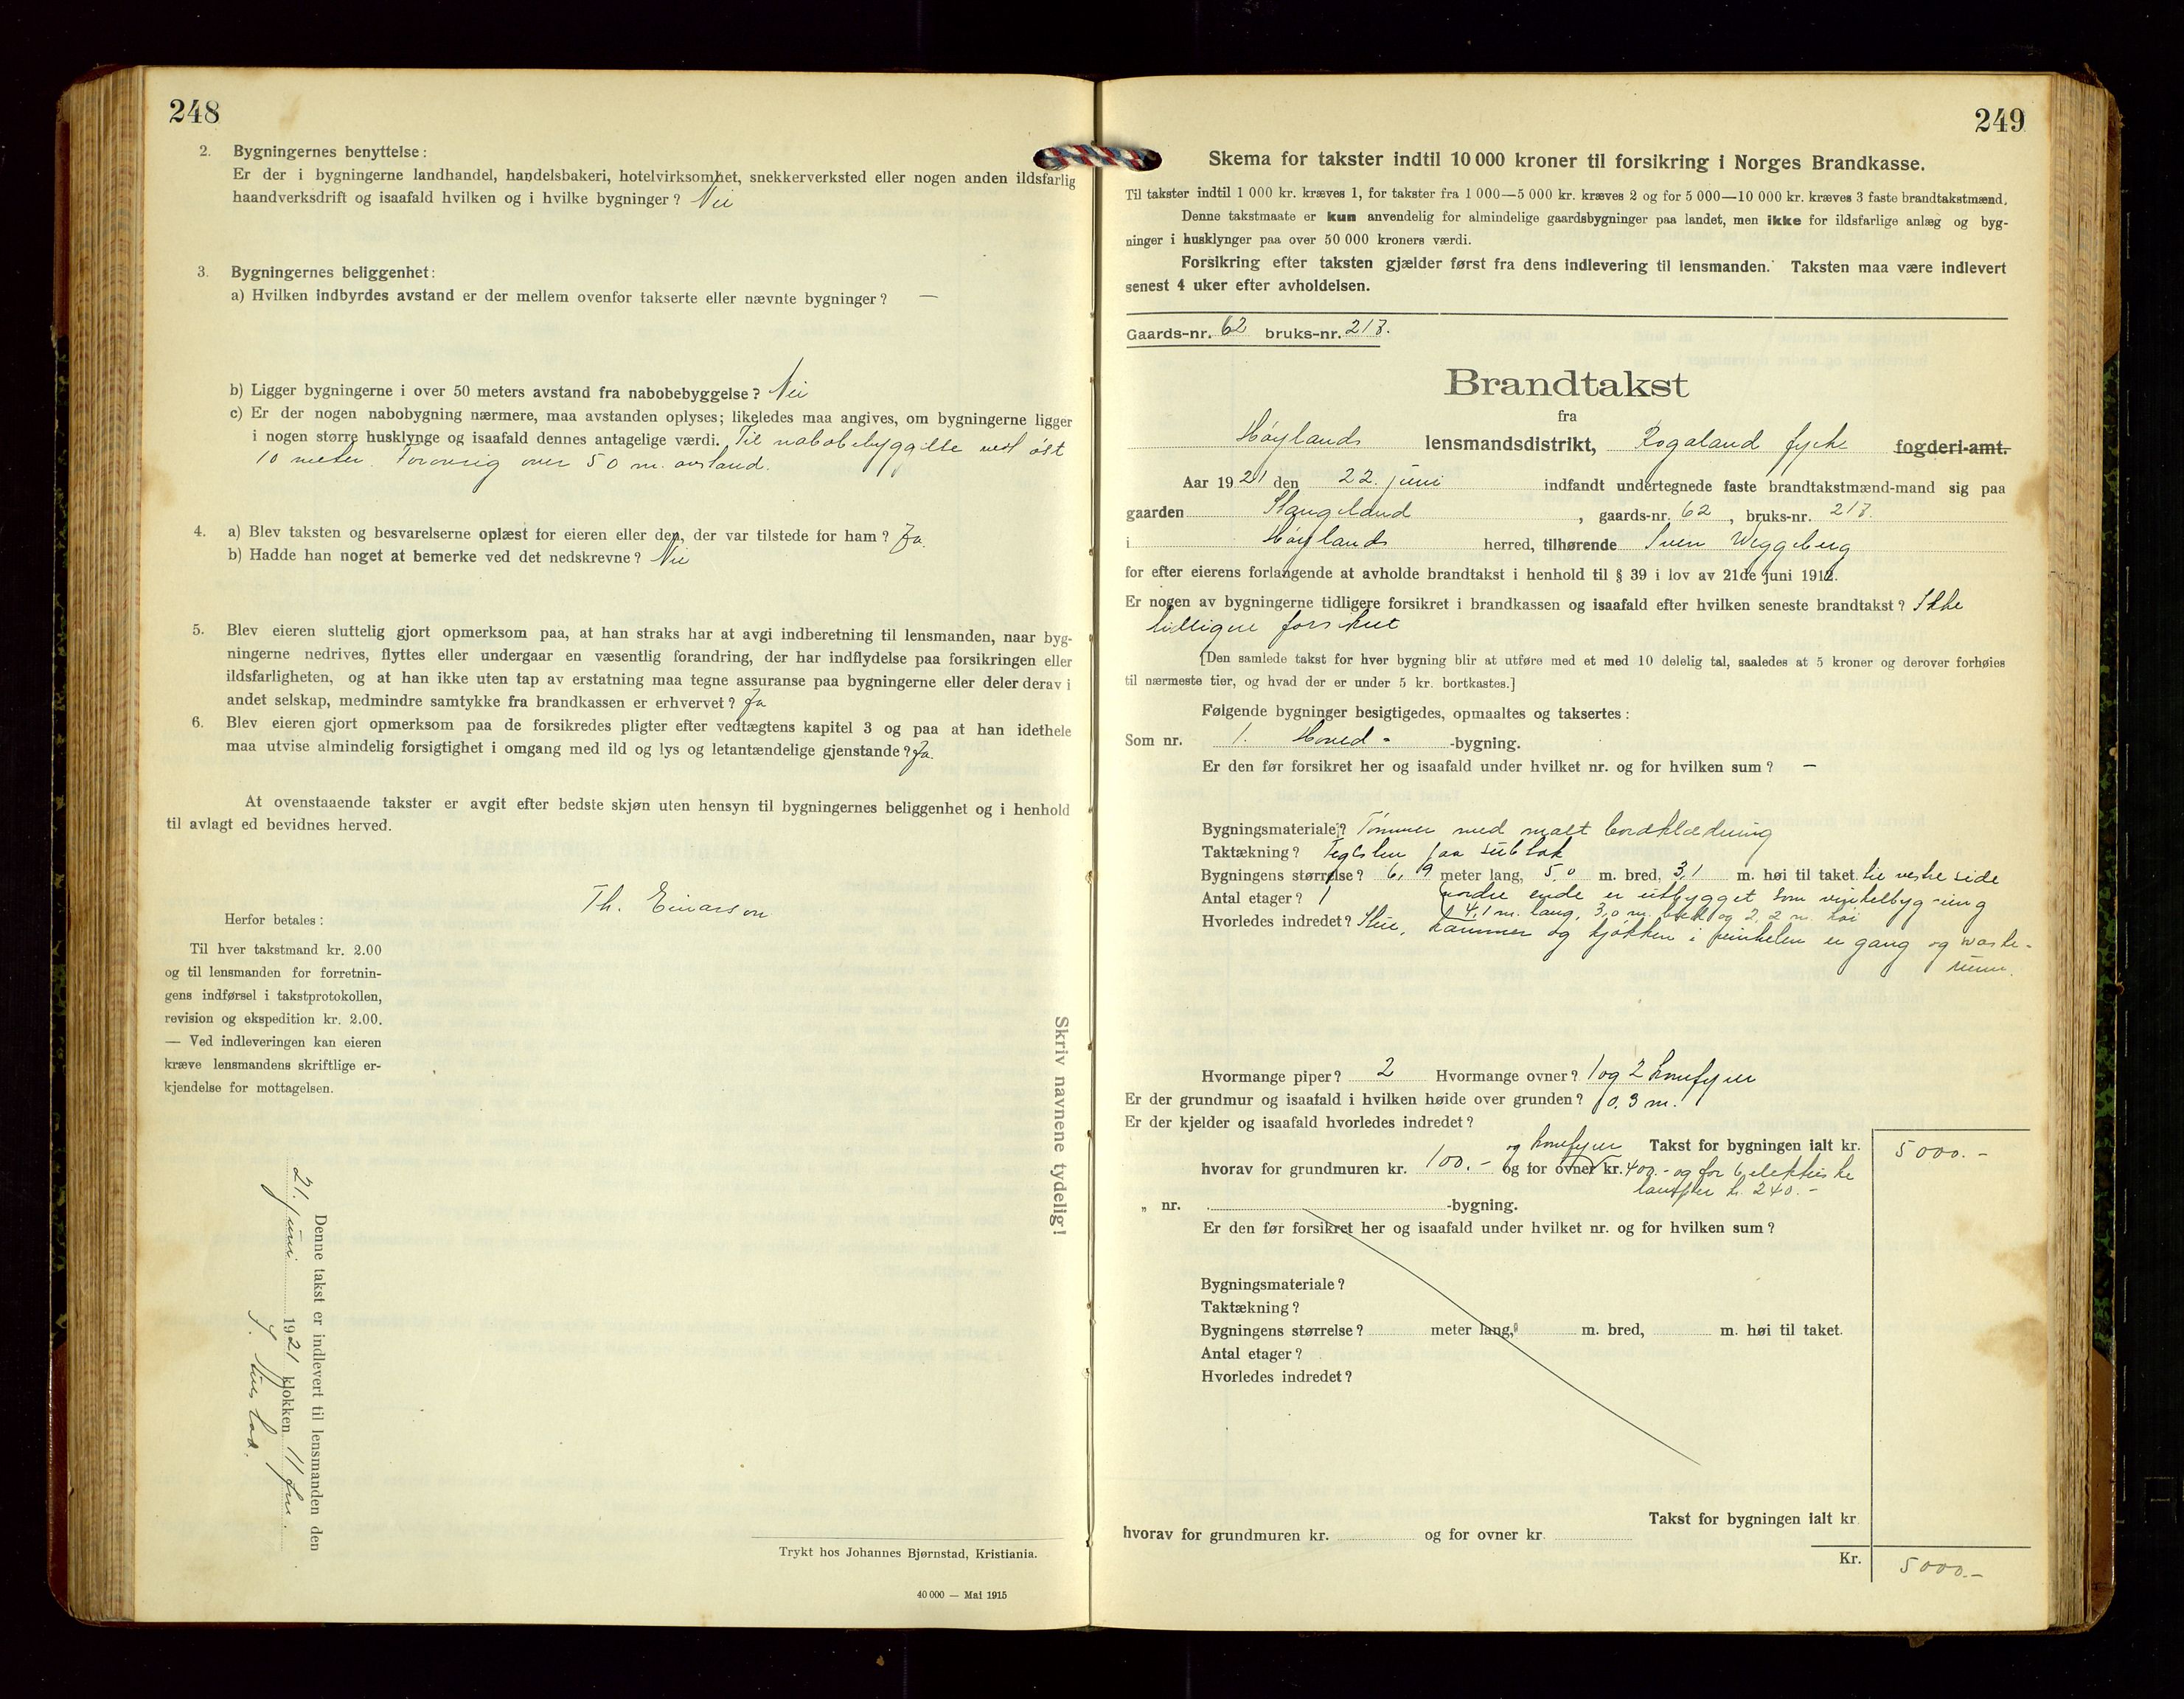 248
2. Bygningernes benyttelse:
Er der i bygningerne landhandel, handelsbakeri, hotelvirksomhet, snekkerverksted eller nogen anden ildsfarlig
haandverksdrift og isaafald hvilken og i hvilke bygninger? Nei
3. Bygningernes beliggenhet:
a) Hvilken indbyrdes avstand er der mellem ovenfor takserte eller nævnte bygninger? —
b) Ligger bygningerne i over 50 meters avstand fra nabobebyggelse? Nei
c) Er der nogen nabobygning nærmere, maa avstanden oplyses; likeledes maa angives, om bygningerne ligger
i nogen større husklynge og isaafald dennes antagelige værdi. Til nabobebyggelse ved øst
10 meter. Forøvrig over 50 m. avstand.
4. a) Blev taksten og besvarelserne oplæst for eieren eller den, der var tilstede for ham? Ja.
b) Hadde han noget at bemerke ved det nedskrevne? Nei
5. Blev eieren sluttelig gjort opmerksom paa, at han straks har at avgi indberetning til lensmanden, naar byg-
ningerne nedrives, flyttes eller undergaar en væsentlig forandring, der har indflydelse paa forsikringen eller
ildsfarligheten, og at han ikke uten tap av erstatning maa tegne assuranse paa bygningerne eller deler derav i
andet selskap, medmindre samtykke fra brandkassen er erhvervet? Ja
6. Blev eieren gjort opmerksom paa de forsikredes pligter efter vedtægtens kapitel 3 og paa at han idethele
maa utvise almindelig forsigtighet i omgang med ild og lys og letantændelige gjenstande? Ja.
At ovenstaaende takster er avgit efter bedste skjøn uten hensyn til bygningernes beliggenhet og i henhold
til avlagt ed bevidnes herved.
Th. Einarson
Herfor betales:
Til hver takstmand kr. 2.00
og til lensmanden for forretnin-
gens indførsel i takstprotokollen,
revision og ekspedition kr. 2.00.
— Ved indleveringen kan eieren
kræve lensmandens skriftlige er-
kjendelse for mottagelsen.
Skriv navnene tydelig!
Denne takst er indlevert til lensmanden den
21. juni 1921 klokken 11 fm.
Trykt hos Johannes Bjørnstad, Kristiania.
40 000 — Mai 1915
249
Skema for takster indtil 10 000 kroner til forsikring i Norges Brandkasse.
Til takster indtil 1 000 kr. kræves 1, for takster fra 1 000—5 000 kr. kræves 2 og for 5 000—10 000 kr. kræves 3 faste brandtakstmænd.
Denne takstmaate er kun anvendelig for almindelige gaardsbygninger paa landet, men ikke for ildsfarlige anlæg og byg-
ninger i husklynger paa over 50 000 kroners værdi.
Forsikring efter taksten gjælder først fra dens indlevering til lensmanden. Taksten maa være indlevert
senest 4 uker efter avholdelsen.
Gaards-nr. 62 bruks-nr. 218.
Brandtakst
fra
Høylands lensmandsdistrikt, Rogaland fylke fogderi-amt.
Aar 1921 den 22. juni indfandt undertegnede faste brandtakstmænd-mand sig paa
gaarden Stangeland, gaards-nr. 62, bruks-nr. 218.
i Høylands herred, tilhørende Sven Weggeberg
for efter eierens forlangende at avholde brandtakst i henhold til § 39 i lov av 21de juni 1912.
Er nogen av bygningerne tidligere forsikret i brandkassen og isaafald efter hvilken seneste brandtakst? Ikke
tidligere forsikret
[Den samlede takst for hver bygning blir at utføre med et med 10 delelig tal, saaledes at 5 kroner og derover forhøies
til nærmeste tier, og hvad der er under 5 kr. bortkastes.]
Følgende bygninger besigtigedes, opmaaltes og taksertes:
Som nr. 1. Hoved- -bygning.
Er den før forsikret her og isaafald under hvilket nr. og for hvilken sum? —
Bygningsmateriale? Tømmer med malt bordklædning
Taktækning? Teglsten paa sutak
Bygningens størrelse? 6,9 meter lang, 5,0 m. bred, 3,1 m. høi til taket. til vestre side
Antal etager? 1 nordre ende er utbygget som vinkelbygning
4,1 m. lang, 3,0 m. bred og 2,2 m. høi
Hvorledes indredet? Stue, kammer og kjøkken i vinkelen er gang og vaske-
rum.
Hvormange piper? 2 Hvormange ovner? 1 og 2 komfyrer
Er der grundmur og isaafald i hvilken høide over grunden? 0.3 m.
Er der kjelder og isaafald hvorledes indredet?
og komfyrer Takst for bygningen ialt kr. 5000.-
hvorav for grundmuren kr. 100.- og for ovner kr. 400.- og for 6 elektriske
lamper kr. 240.-
„ nr. -bygning.
Er den før forsikret her og isaafald under hvilket nr. og for hvilken sum?
Bygningsmateriale?
Taktækning?
Bygningens størrelse? meter lang, m. bred, m. høi til taket.
Antal etager?
Hvorledes indredet?
Takst for bygningen ialt kr.
hvorav for grundmuren kr. og for ovner kr.
Kr. 5000.-